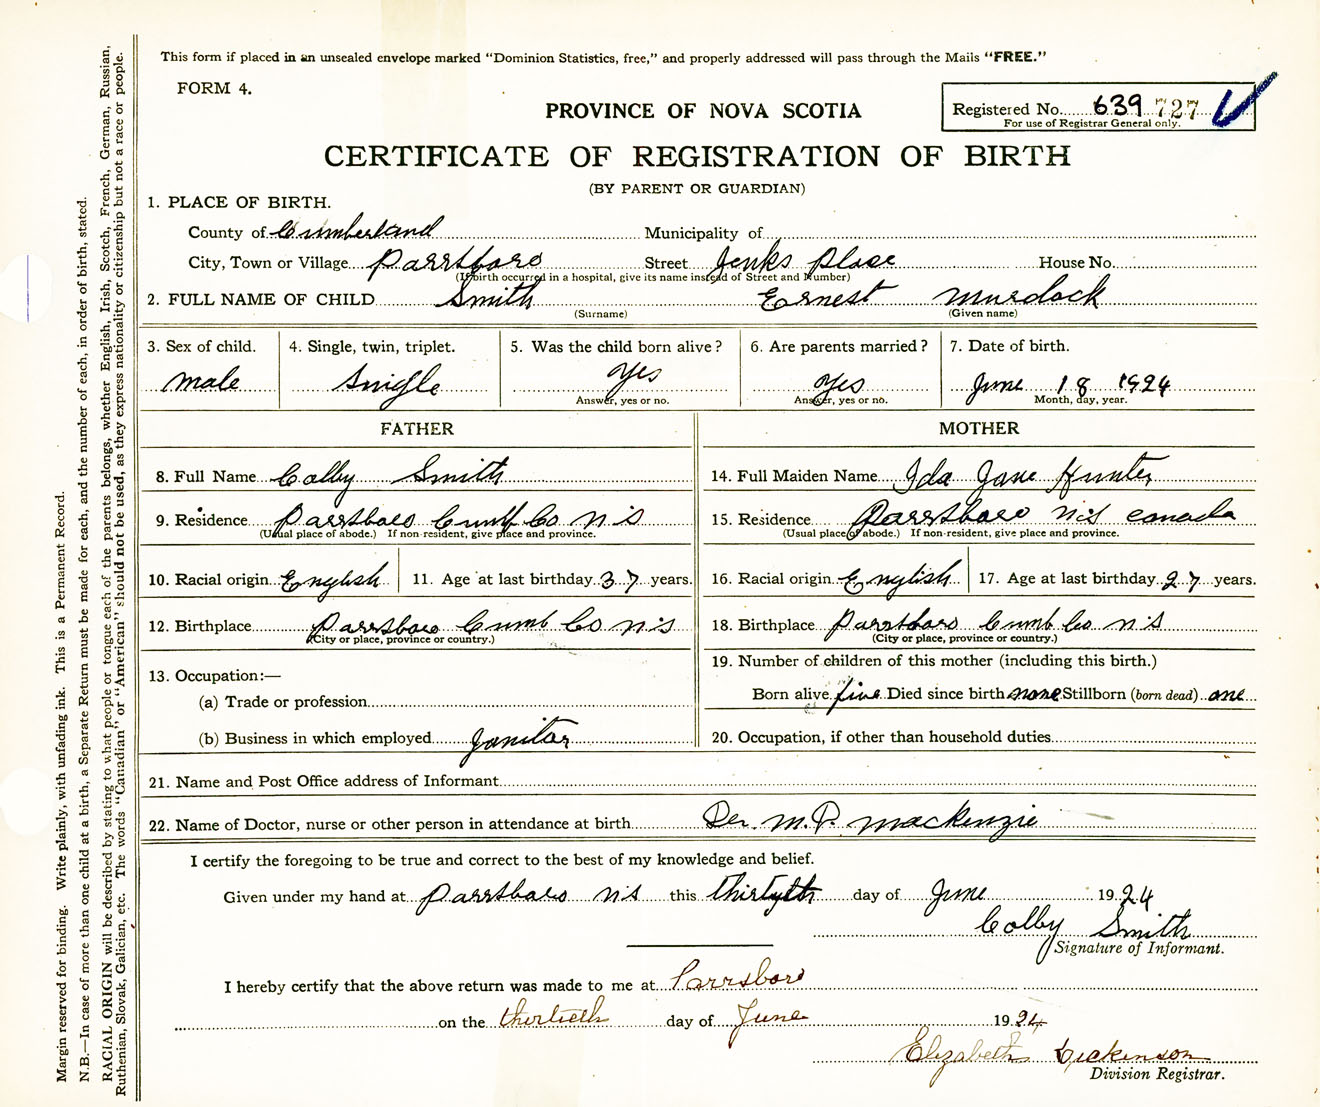 This form if placed in an unsealed envelope marked “Dominion Statistics, free,” and properly addressed will pass through the Mails “FREE.”
FORM 4.
PROVINCE OF NOVA SCOTIA
Registered No. 639 727
For use of Registrar General only.
CERTIFICATE OF REGISTRATION OF BIRTH
(BY PARENT OR GUARDIAN)
1. PLACE OF BIRTH.
County of Cumberland Municipality of
City, Town or Village Parrsboro Street Jenks Place House No.
(If birth occurred in a hospital, give its name instead of Street and Number)
2. FULL NAME OF CHILD Smith Ernest Murdock
(Surname) (Given name)
3. Sex of child. 4. Single, twin, triplet. 5. Was the child born alive? 6. Are parents married? 7. Date of birth.
male Snigle Yes Yes June 18 1924
Answer, yes or no. Answer, yes or no. Month, day, year.
FATHER MOTHER
8. Full Name Colby Smith 14. Full Maiden Name Ida Jane Hunter
9. Residence Parrsboro Cumb Co N.S 15. Residence Parrsboro N.S Canada
(Usual place of abode.) If non-resident, give place and province. (Usual place of abode.) If non-resident, give place and province.
10. Racial origin English 11. Age at last birthday 37 years. 16. Racial origin English 17. Age at last birthday 27 years.
12. Birthplace Parrsboro Cumb Co N.S 18. Birthplace Parrsboro Cumb Co N.S
(City or place, province or country.) (City or place, province or country.)
13. Occupation:— 19. Number of children of this mother (including this birth.)
(a) Trade or profession Born alive five Died since birth none Stillborn (born dead) one
(b) Business in which employed Janitor 20. Occupation, if other than household duties
21. Name and Post Office address of Informant
22. Name of Doctor, nurse or other person in attendance at birth M. P. Mackenzie
I certify the foregoing to be true and correct to the best of my knowledge and belief.
Given under my hand at Parrsboro N.S this thirtyth day of June 1924
Colby Smith
Signature of Informant.
I hereby certify that the above return was made to me at Parrsboro
on the thirtieth day of June 1924
Elizabeth Dickinson
Division Registrar.
Margin reserved for binding. Write plainly, with unfading ink. This is a Permanent Record.
N.B.—In case of more than one child at a birth, a Separate Return must be made for each, and the number of each, in order of birth, stated.
RACIAL ORIGIN will be described by stating to what people or tongue each of the parents belongs, whether English, Irish, Scotch, French, German, Russian,
Ruthenian, Slovak, Galician, etc. The words “Canadian” or “American” should not be used, as they express nationality or citizenship but not a race or people.